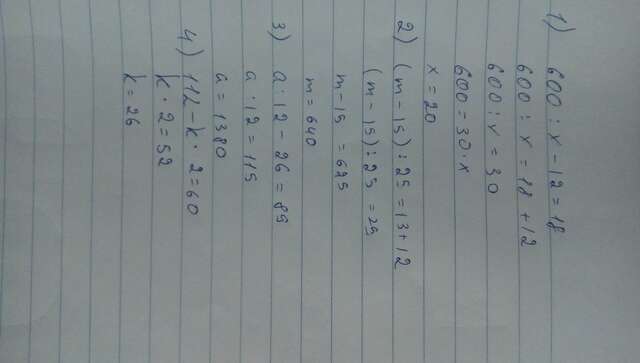 1) 600 : x - 12 = 18
600 : x = 18 + 12
600 : x = 30
600 = 30 · x
x = 20
2) (m - 15) : 25 = 13 + 12
(m - 15) : 25 = 25
m - 15 = 625
m = 640
3) a : 12 - 26 = 89
a : 12 = 115
a = 1380
4) 112 - k · 2 = 60
k · 2 = 52
k = 26